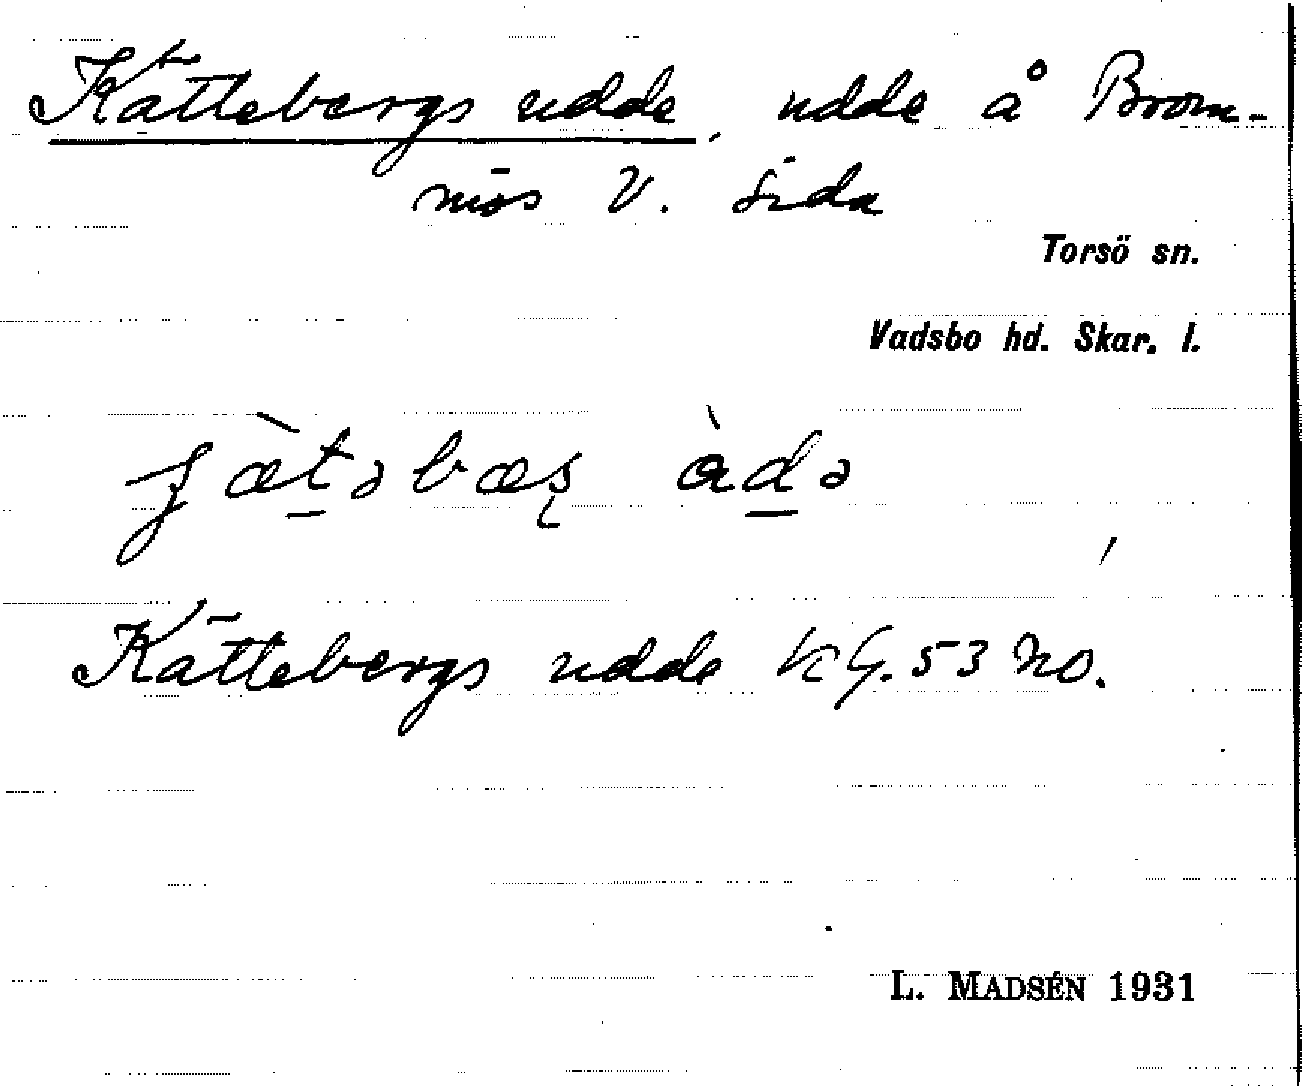 Kättebergs udde, udde å Brom-
mös V. sida
Torsö sn.
Vadsbo hd. Skar. l.
àdə
Kättebergs udde kG. 53 no.
L. MADSÉN 1931